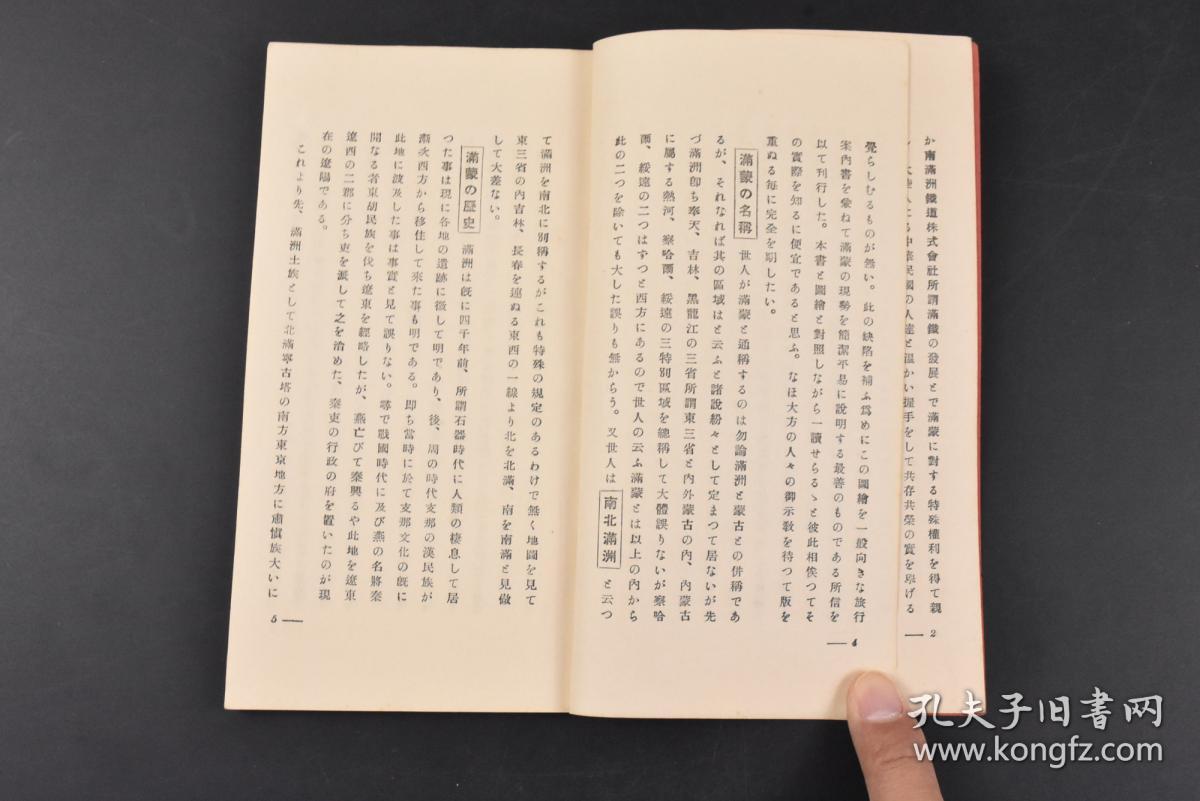 か南滿洲鐵道株式會社所謂滿鐵の發展とで滿蒙に對する特殊權利を得て親
中華民國の人達と溫かい握手をして共存共榮の實を擧げる
2
覺らしむるものが無い。此の缺陷を補ふ爲めにこの圖繪を一般向きな旅行
案內書を兼ねて滿蒙の現勢を簡潔平易に說明する最善のものである所信を
以て刊行した。本書と圖繪と對照しながら一讀せらるゝと彼此相俟つてそ
の實際を知るに便宜であると思ふ。なほ大方の人々の御示敎を待つて版を
重ぬる每に完全を期したい。
滿蒙の名稱 世人が滿蒙と通稱するのは勿論滿洲と蒙古との倂稱であ
るが、それなれば其の區域はと云ふと諸說紛々として定まつて居ないが先
づ滿洲卽ち奉天、吉林、黑龍江の三省所謂東三省と內外蒙古の內、內蒙古
に屬する熱河、察哈爾、綏遠の三特別區域を總稱して大體誤りないが察哈
爾、綏遠の二つはずつと西方にあるので世人の云ふ滿蒙とは以上の內から
此の二つを除いても大した誤りも無からう。又世人は 南北滿洲 と云つ
4
て滿洲を南北に別稱するがこれも特殊の規定のあるわけで無く地圖を見て
東三省の內吉林、長春を連ぬる東西の一線より北を北滿、南を南滿と見做
して大差ない。
滿蒙の歷史 滿洲は旣に四千年前、所謂石器時代に人類の棲息して居
つた事は現に各地の遺跡に徵して明であり、後、周の時代支那の漢民族が
漸次西方から移住して來た事も明である。卽ち當時に於て支那文化の旣に
此地に波及した事は事實と見て誤りない。尋で戰國時代に及び燕の名將秦
開なる者東胡民族を伐ち遼東を經略したが、燕亡びて秦興るや此地を遼東
遼西の二郡に分ち吏を派して之を治めた、秦吏の行政の府を置いたのが現
在の遼陽である。
これより先、滿洲土族として北滿寧古塔の南方東京地方に肅愼族大いに
5
孔夫子旧書网
www.kongfz.com